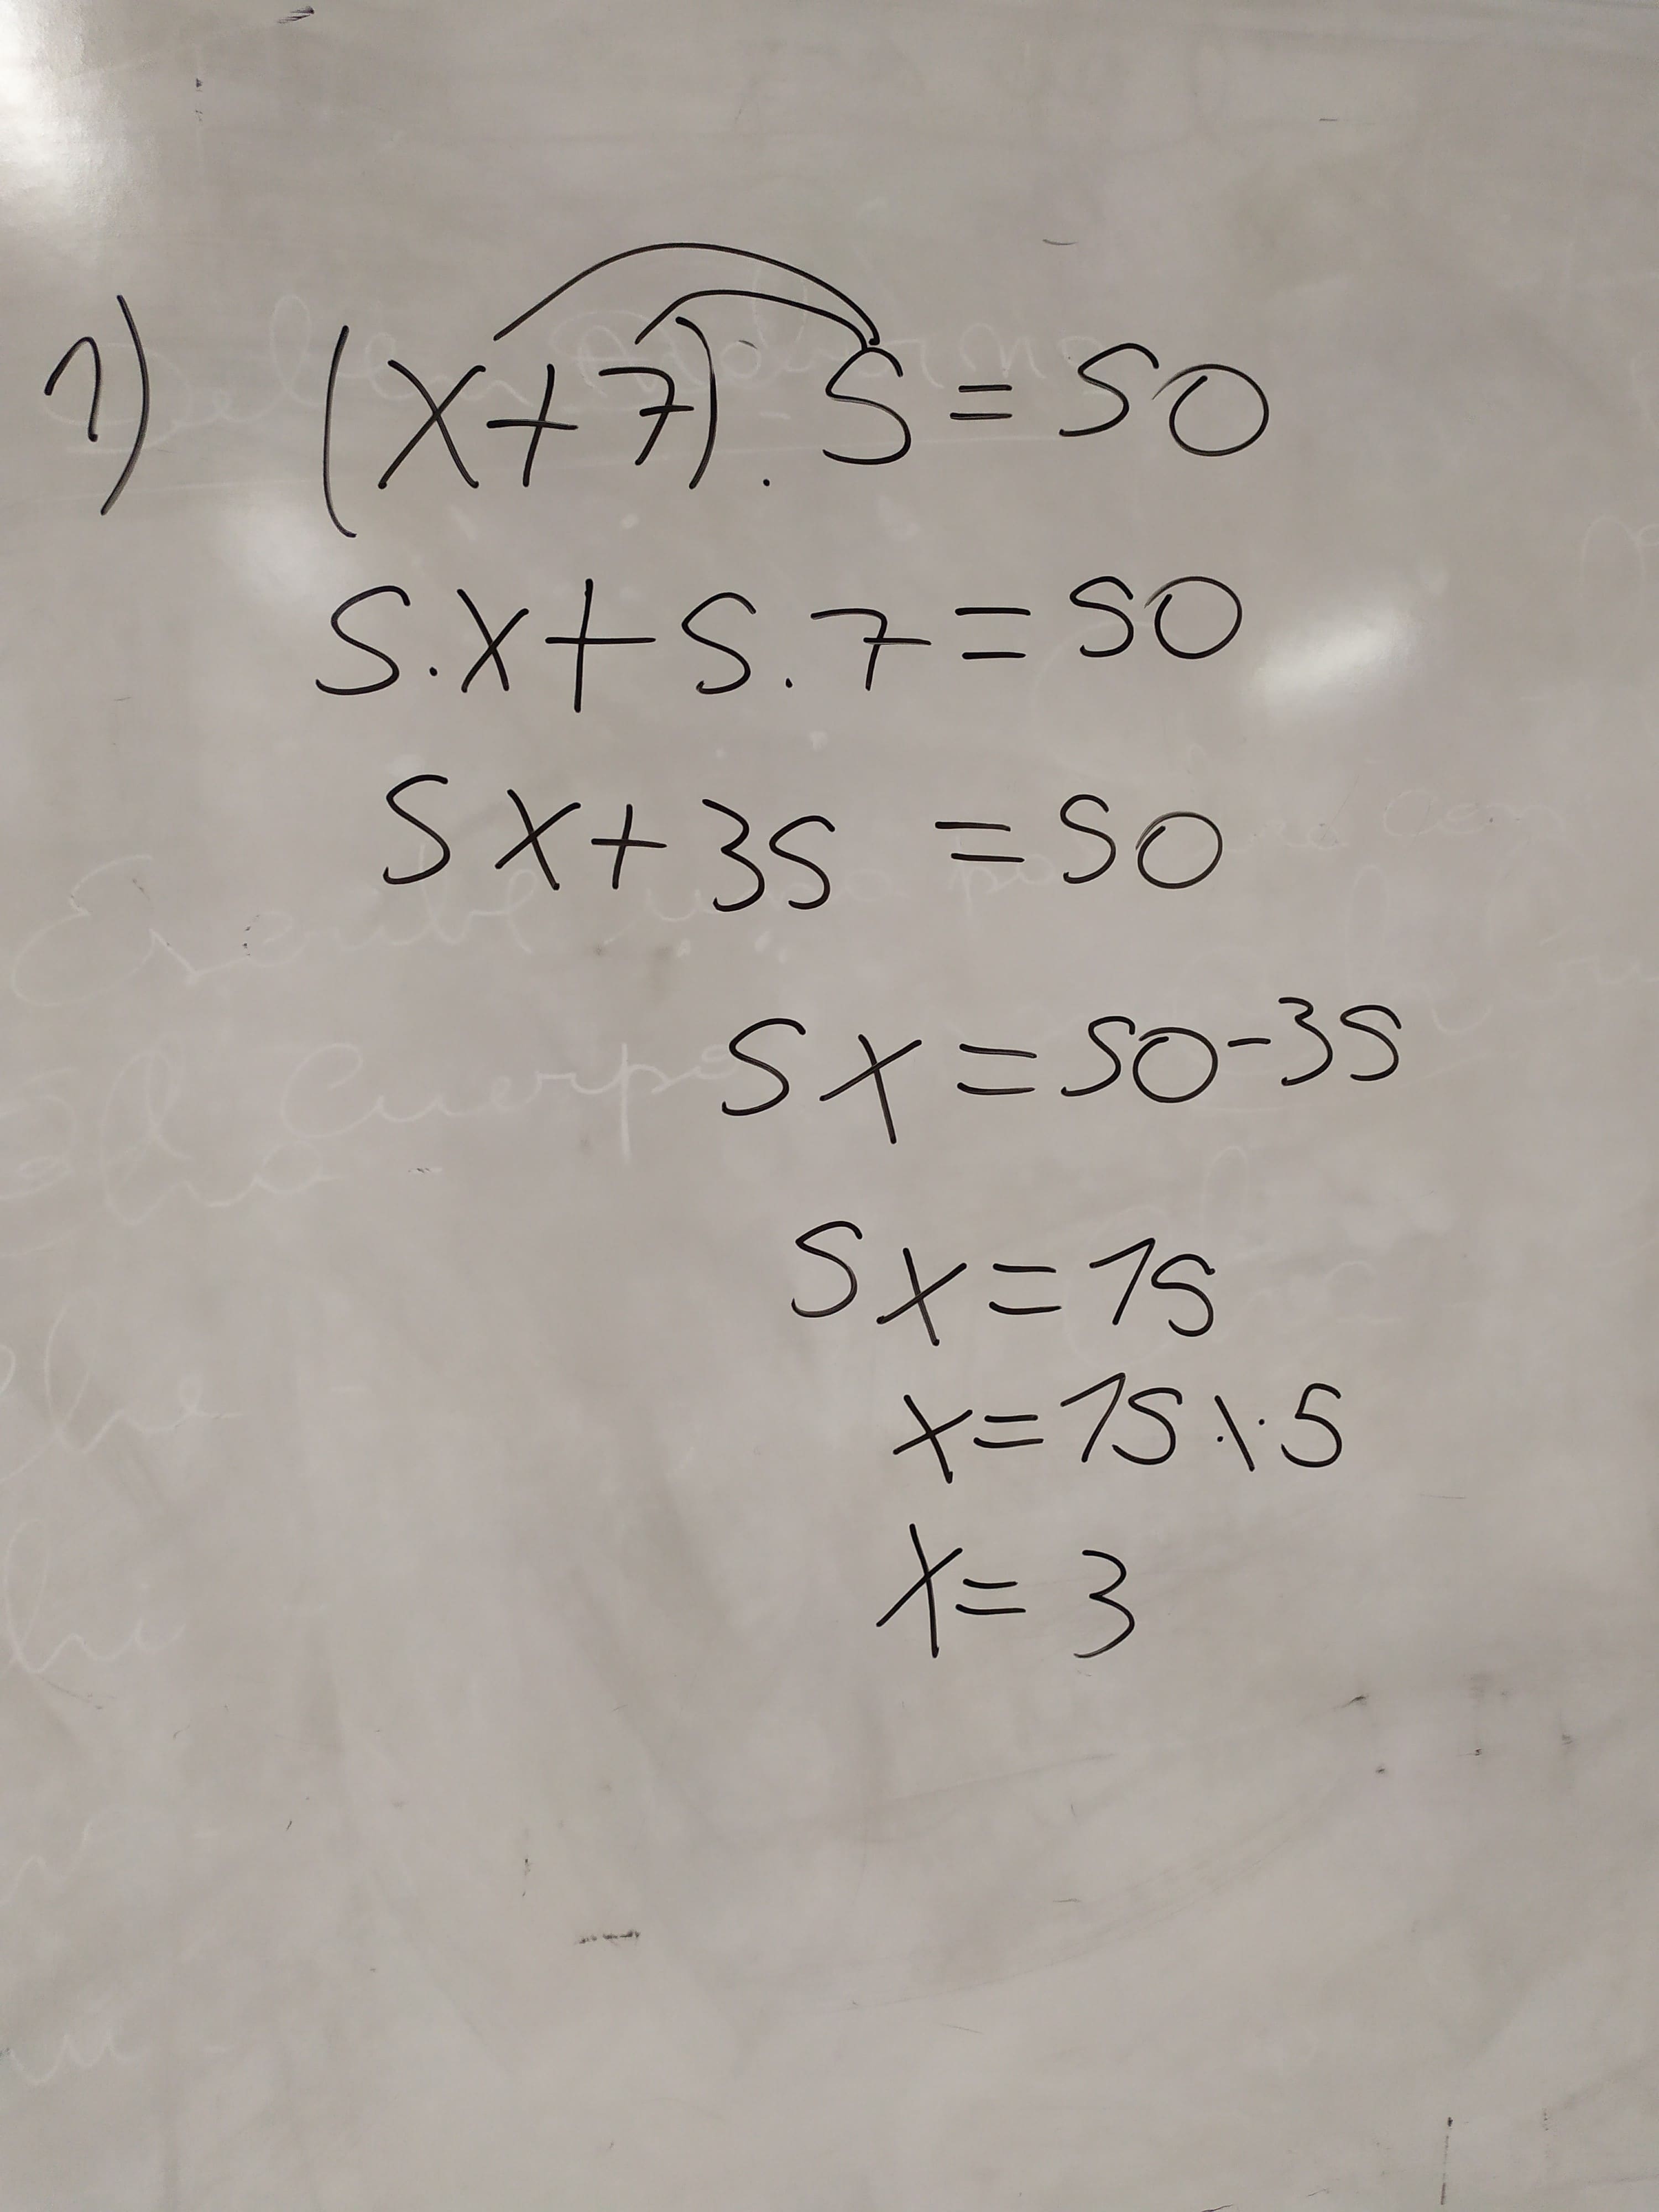 1) (x+7).5=50
5.x+5.7=50
5x+35=50
5x=50-35
5x=15
x=15·\·5
x=3